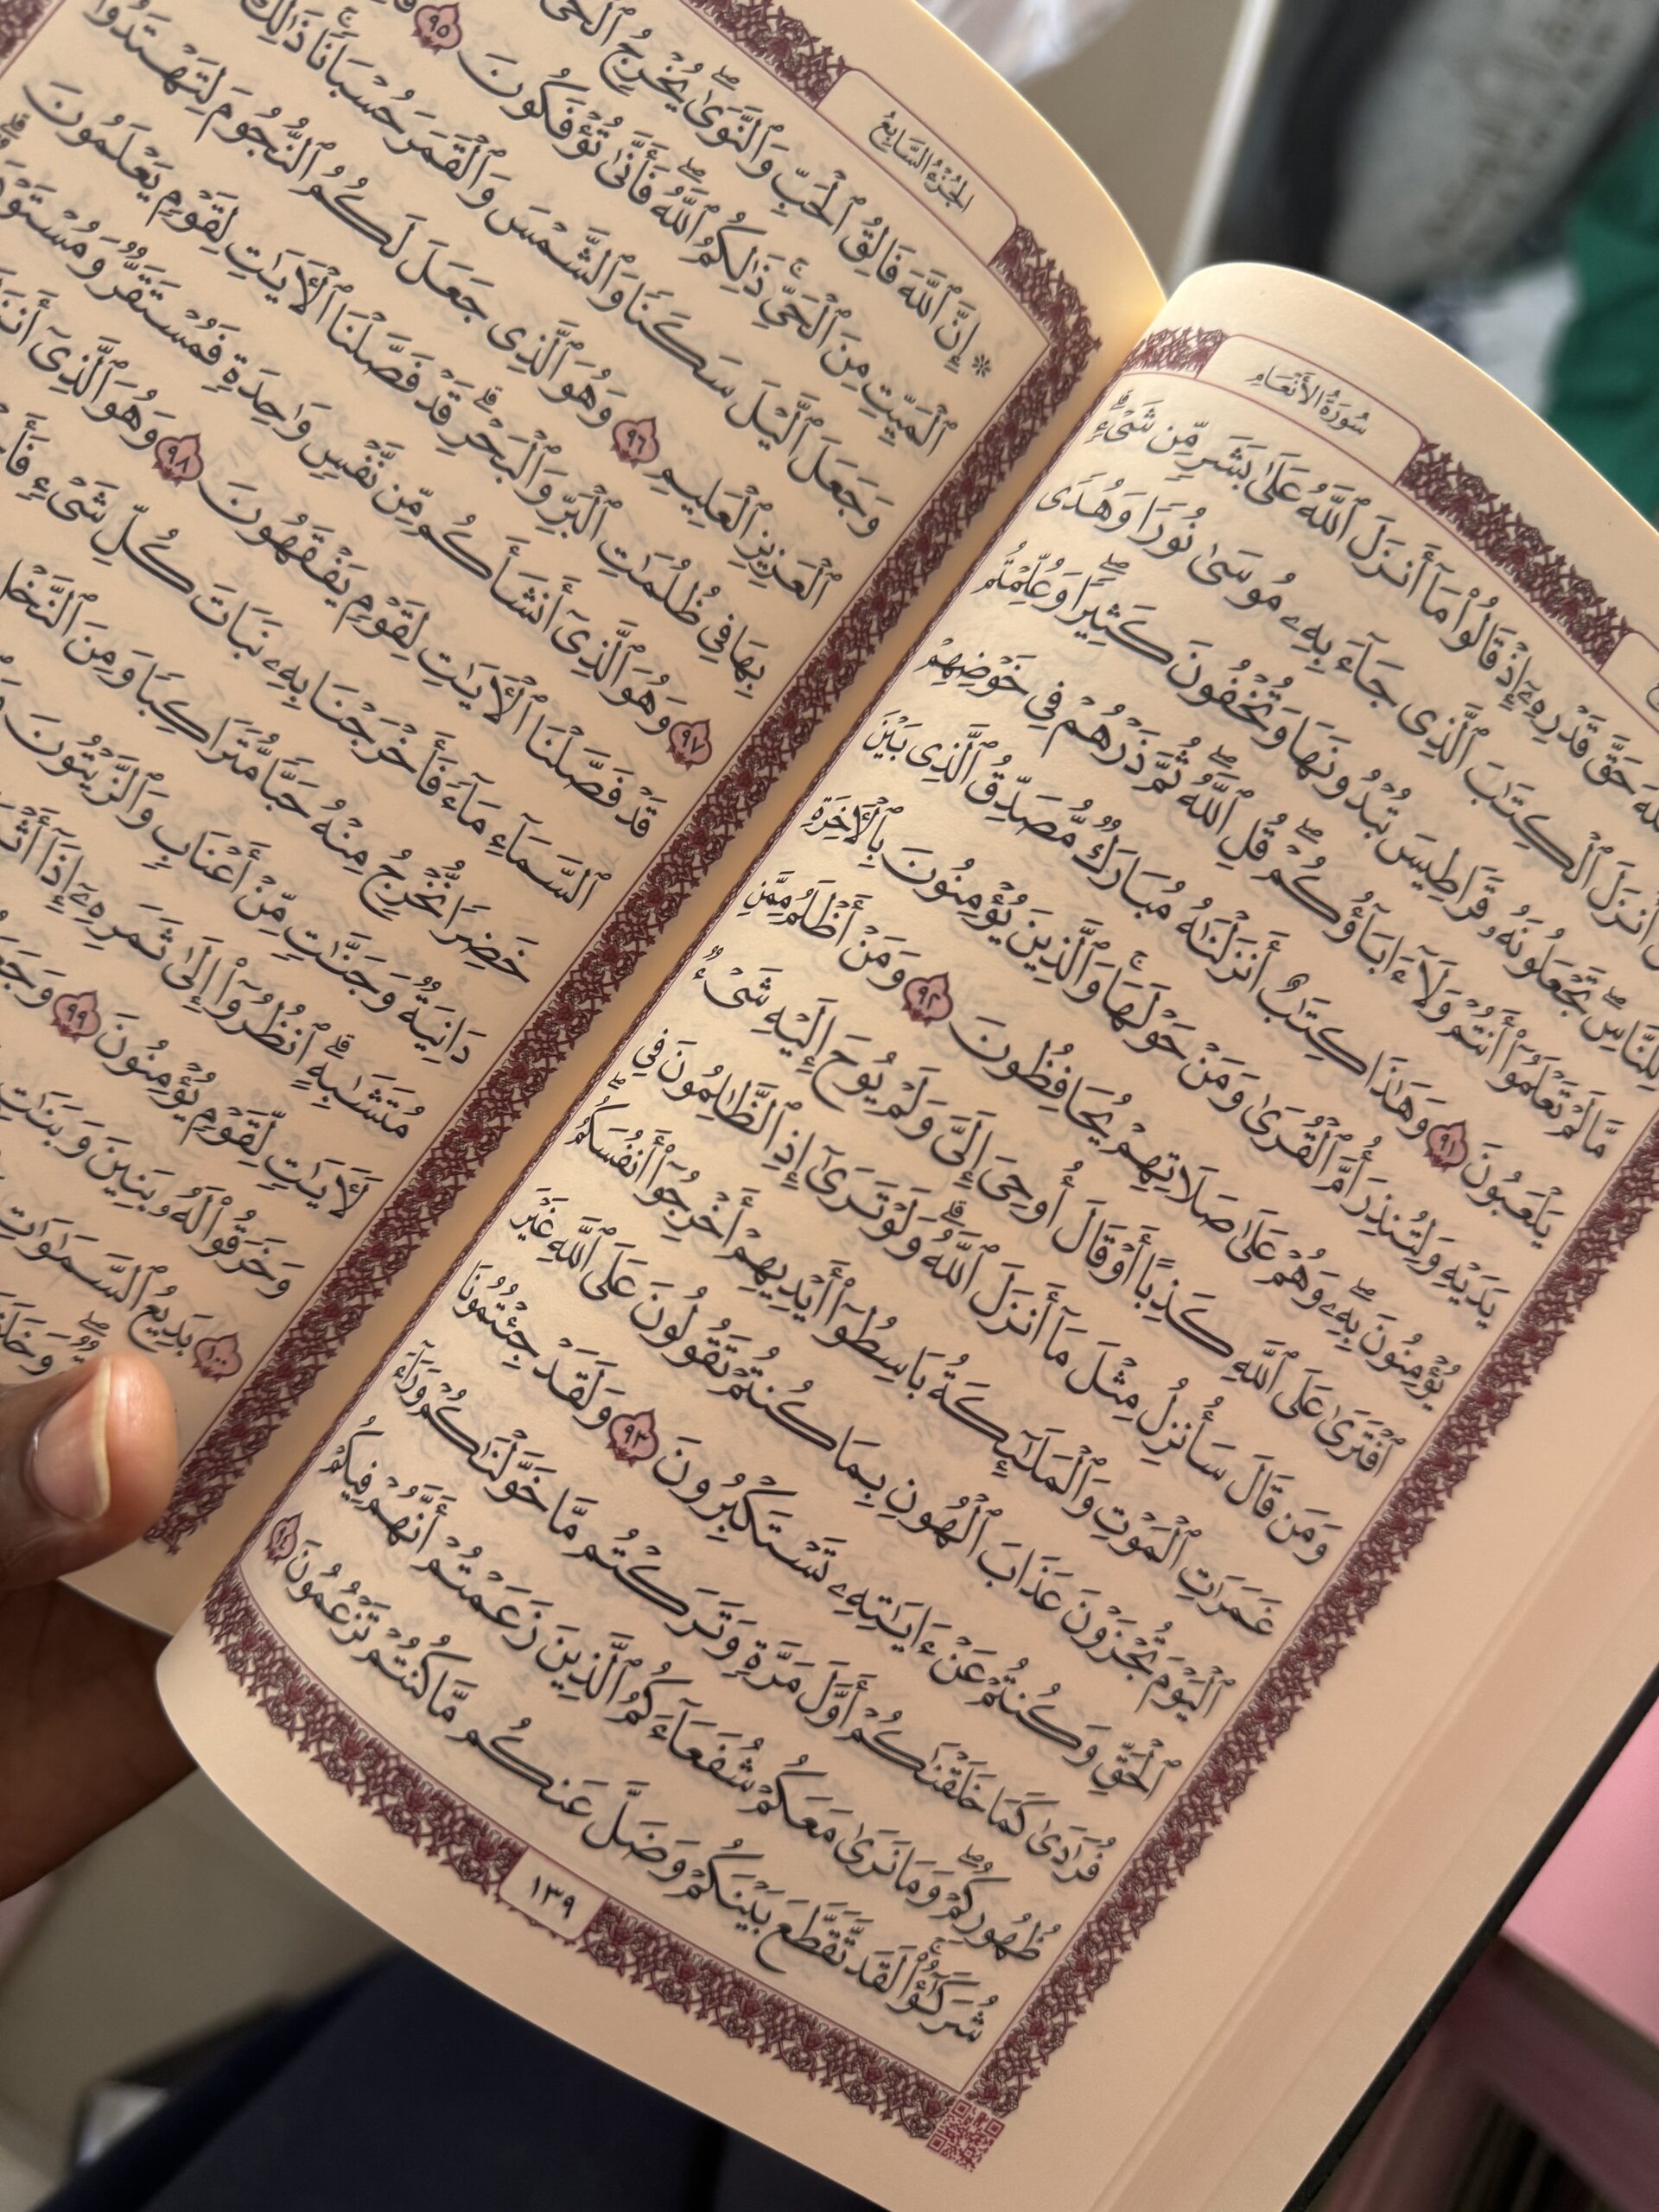 سُورَةُ الأَنْعَامِ
حَقَّ قَدْرِهِۦٓ إِذْ قَالُوا۟ مَآ أَنزَلَ ٱللَّهُ عَلَىٰ بَشَرٍ مِّن شَىْءٍ ۗ
أَنزَلَ ٱلْكِتَٰبَ ٱلَّذِى جَآءَ بِهِۦ مُوسَىٰ نُورًا وَهُدًى
لِّلنَّاسِ ۖ تَجْعَلُونَهُۥ قَرَاطِيسَ تُبْدُونَهَا وَتُخْفُونَ كَثِيرًا ۖ وَعُلِّمْتُم
مَّا لَمْ تَعْلَمُوٓا۟ أَنتُمْ وَلَآ ءَابَآؤُكُمْ ۖ قُلِ ٱللَّهُ ۖ ثُمَّ ذَرْهُمْ فِى خَوْضِهِمْ
يَلْعَبُونَ ٩١ وَهَٰذَا كِتَٰبٌ أَنزَلْنَٰهُ مُبَارَكٌ مُّصَدِّقُ ٱلَّذِى بَيْنَ
يَدَيْهِ وَلِتُنذِرَ أُمَّ ٱلْقُرَىٰ وَمَنْ حَوْلَهَا ۚ وَٱلَّذِينَ يُؤْمِنُونَ بِٱلْءَاخِرَةِ
يُؤْمِنُونَ بِهِۦ ۖ وَهُمْ عَلَىٰ صَلَاتِهِمْ يُحَافِظُونَ ٩٢ وَمَنْ أَظْلَمُ مِمَّنِ
ٱفْتَرَىٰ عَلَى ٱللَّهِ كَذِبًا أَوْ قَالَ أُوحِىَ إِلَىَّ وَلَمْ يُوحَ إِلَيْهِ شَىْءٌ
وَمَن قَالَ سَأُنزِلُ مِثْلَ مَآ أَنزَلَ ٱللَّهُ ۗ وَلَوْ تَرَىٰٓ إِذِ ٱلظَّٰلِمُونَ فِى
غَمَرَٰتِ ٱلْمَوْتِ وَٱلْمَلَٰٓئِكَةُ بَاسِطُوٓا۟ أَيْدِيهِمْ أَخْرِجُوٓا۟ أَنفُسَكُمُ ۖ
ٱلْيَوْمَ تُجْزَوْنَ عَذَابَ ٱلْهُونِ بِمَا كُنتُمْ تَقُولُونَ عَلَى ٱللَّهِ غَيْرَ
ٱلْحَقِّ وَكُنتُمْ عَنْ ءَايَٰتِهِۦ تَسْتَكْبِرُونَ ٩٣ وَلَقَدْ جِئْتُمُونَا
فُرَٰدَىٰ كَمَا خَلَقْنَٰكُمْ أَوَّلَ مَرَّةٍ وَتَرَكْتُم مَّا خَوَّلْنَٰكُمْ وَرَآءَ
ظُهُورِكُمْ ۖ وَمَا نَرَىٰ مَعَكُمْ شُفَعَآءَكُمُ ٱلَّذِينَ زَعَمْتُمْ أَنَّهُمْ فِيكُمْ
شُرَكَٰٓؤُا۟ ۚ لَقَد تَّقَطَّعَ بَيْنَكُمْ وَضَلَّ عَنكُم مَّا كُنتُمْ تَزْعُمُونَ ٩٤
١٣٩
الجُزْءُ السَّابِعُ
۞ إِنَّ ٱللَّهَ فَالِقُ ٱلْحَبِّ وَٱلنَّوَىٰ ۖ يُخْرِجُ ٱلْحَىَّ
ٱلْمَيِّتِ مِنَ ٱلْحَىِّ ۚ ذَٰلِكُمُ ٱللَّهُ ۖ فَأَنَّىٰ تُؤْفَكُونَ ٩٥
وَجَعَلَ ٱلَّيْلَ سَكَنًا وَٱلشَّمْسَ وَٱلْقَمَرَ حُسْبَانًا ۚ ذَٰلِكَ
ٱلْعَزِيزِ ٱلْعَلِيمِ ٩٦ وَهُوَ ٱلَّذِى جَعَلَ لَكُمُ ٱلنُّجُومَ لِتَهْتَدُوا۟
بِهَا فِى ظُلُمَٰتِ ٱلْبَرِّ وَٱلْبَحْرِ ۗ قَدْ فَصَّلْنَا ٱلْءَايَٰتِ لِقَوْمٍ يَعْلَمُونَ
٩٧ وَهُوَ ٱلَّذِىٓ أَنشَأَكُم مِّن نَّفْسٍ وَٰحِدَةٍ فَمُسْتَقَرٌّ وَمُسْتَوْدَعٌ ۗ
قَدْ فَصَّلْنَا ٱلْءَايَٰتِ لِقَوْمٍ يَفْقَهُونَ ٩٨ وَهُوَ ٱلَّذِىٓ أَنزَلَ
ٱلسَّمَآءِ مَآءً فَأَخْرَجْنَا بِهِۦ نَبَاتَ كُلِّ شَىْءٍ
خَضِرًا نُّخْرِجُ مِنْهُ حَبًّا مُّتَرَاكِبًا وَمِنَ ٱلنَّخْلِ
دَانِيَةٌ وَجَنَّٰتٍ مِّنْ أَعْنَابٍ وَٱلزَّيْتُونَ
مُتَشَٰبِهٍ ۗ ٱنظُرُوٓا۟ إِلَىٰ ثَمَرِهِۦٓ إِذَآ أَثْمَرَ
لَءَايَٰتٍ لِّقَوْمٍ يُؤْمِنُونَ ٩٩
وَخَرَقُوا۟ لَهُۥ بَنِينَ وَبَنَٰتٍ
١٠٠ بَدِيعُ ٱلسَّمَٰوَٰتِ